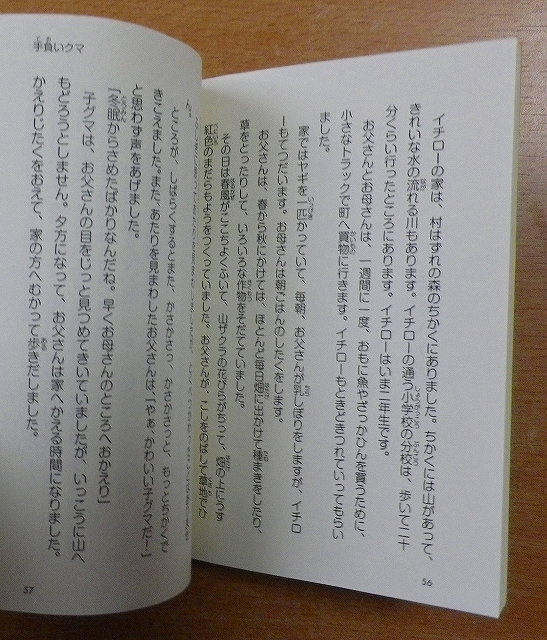 イチローの家は、村はずれの森のちかくにありました。ちかくには山があって、
きれいな水の流れる川もあります。イチローの通う小学校の分校は、歩いて二十
分くらい行ったところにあります。イチローはいま二年生です。
お父さんとお母さんは、一週間に一度、おもに魚やざっかひんを買うために、
小さなトラックで町へ買物に行きます。イチローもときどきつれていってもらい
ました。
家ではヤギを一匹かっていて、毎朝、お父さんが乳しぼりをしますが、イチロ
ーもてつだいます。お母さんは朝ごはんのしたくをします。
お父さんは、春から秋にかけては、ほとんど毎日畑に出かけて種まきをしたり、
草をとったりして、いろいろな作物をそだてていました。
その日は春風がここちよくふいて、山ザクラの花びらがちって、畑の上にうす
紅色のまだらもようをつくっていました。お父さんが、こしをのばして草地でひ
56
手負いクマ
ん。
ところが、しばらくするとまた、かさかさっ、かさかさっと、もっとちかくで
きこえました。また、あたりを見まわしたお父さんは「やぁ、かわいい子グマだー!」
と思わず声をあげました。
「冬眠からさめたばかりなんだね。早くお母さんのところへおかえり」
子グマは、お父さんの目をじっと見つめてきいていましたが、いっこうに山へ
もどろうとしません。夕方になって、お父さんは家へかえる時間になりました。
かえりじたくをおえて、家の方へむかって歩きだしました。
57